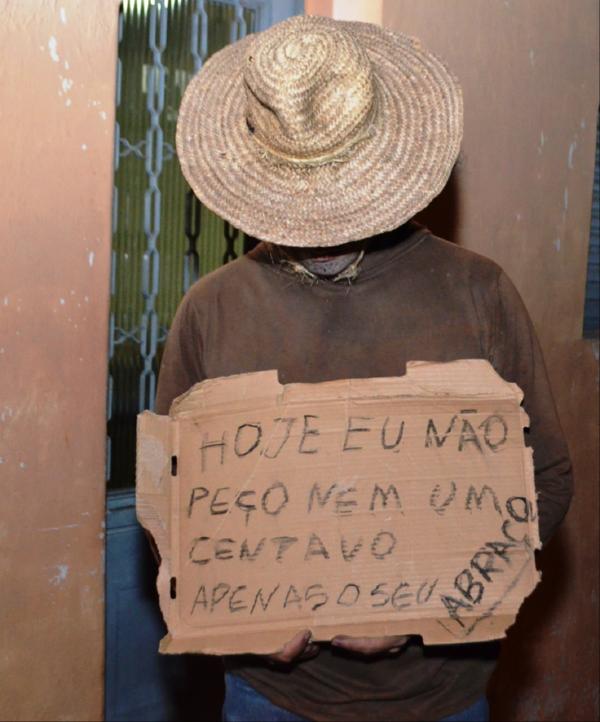 HOJE EU NÃO
PEÇO NEM UM
CENTAVO
APENAS O SEU
ABRAÇO